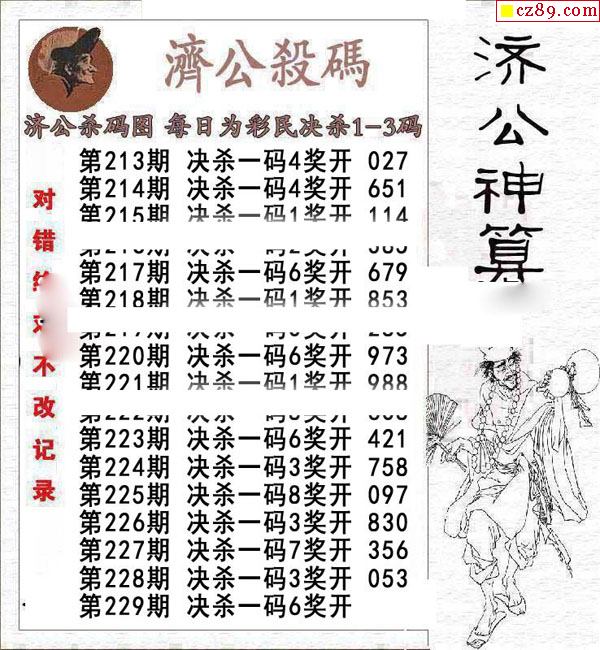 cz89.com
濟公殺碼
济公杀码图 每日为彩民决杀1-3码
第213期 决杀一码4奖开 027
第214期 决杀一码4奖开 651
第215期 决杀一码1奖开 114
第217期 决杀一码6奖开 679
第218期 决杀一码1奖开 853
第220期 决杀一码6奖开 973
第221期 决杀一码1奖开 988
第223期 决杀一码6奖开 421
第224期 决杀一码3奖开 758
第225期 决杀一码8奖开 097
第226期 决杀一码3奖开 830
第227期 决杀一码7奖开 356
第228期 决杀一码3奖开 053
第229期 决杀一码6奖开
对错
不改记录
济公神算